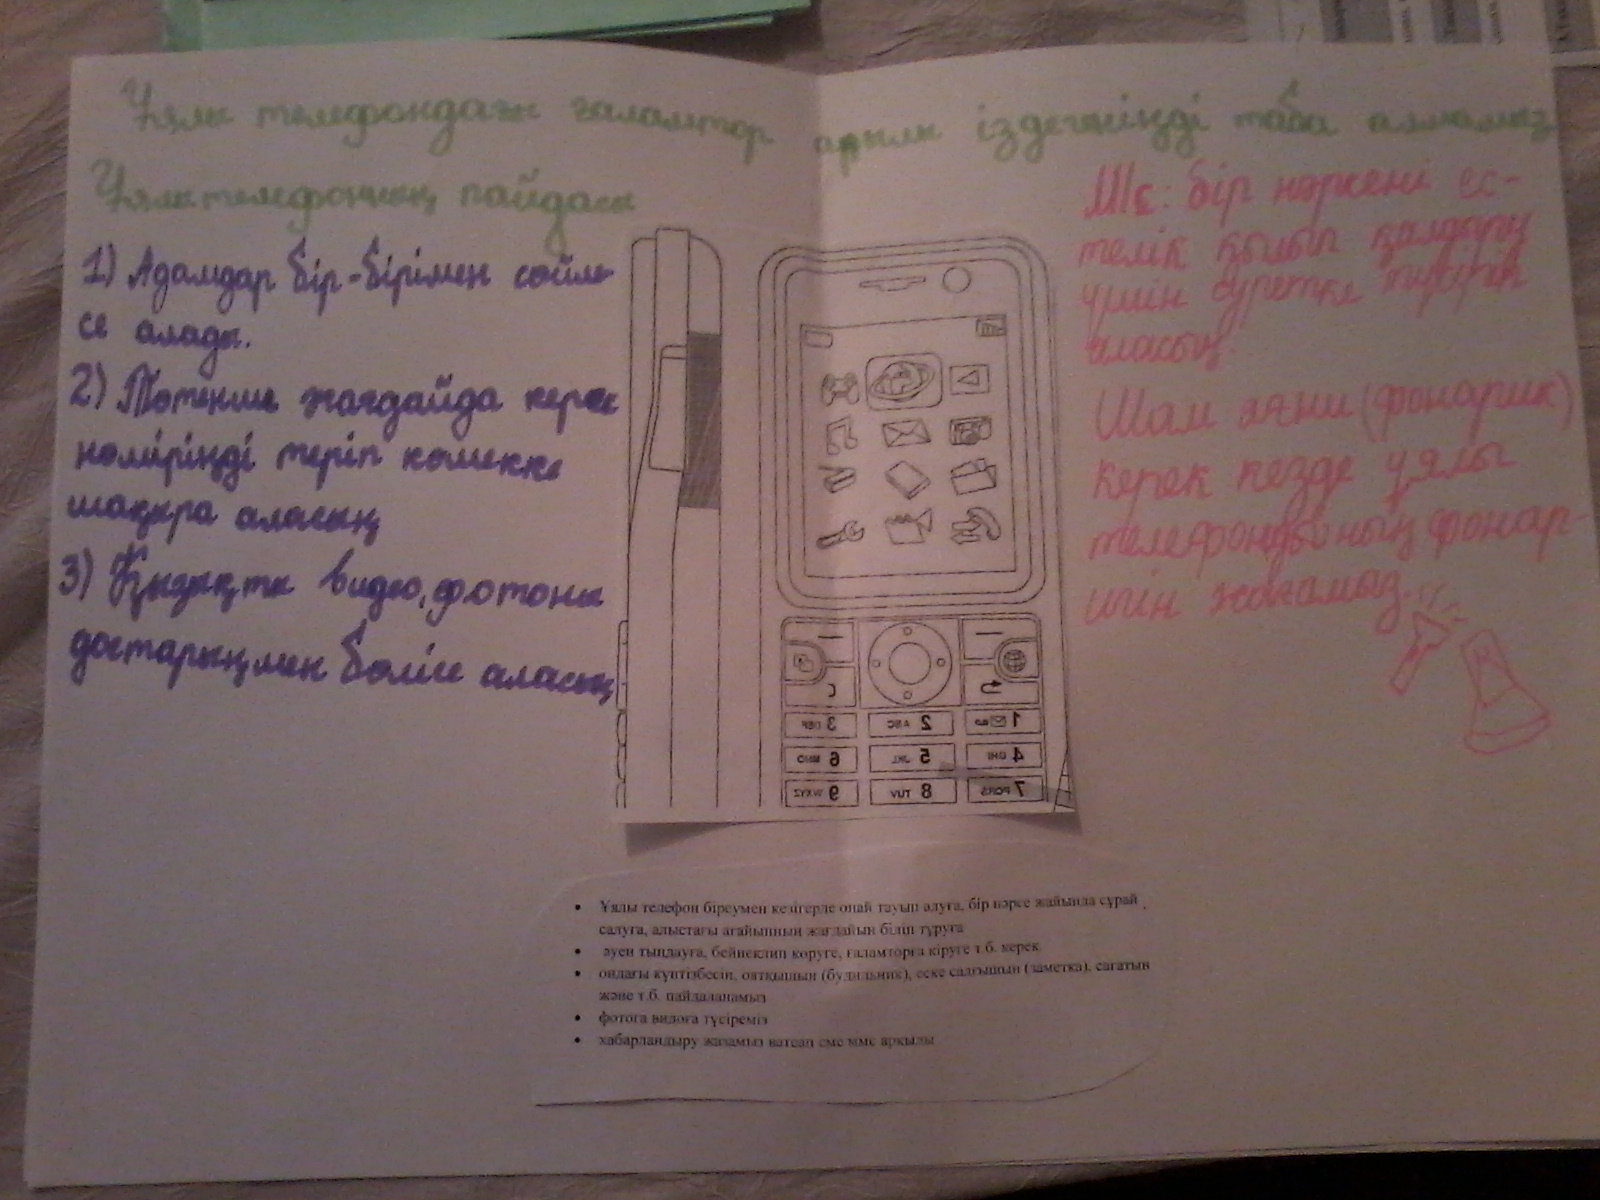 Ұялы телефондағы ғаламтор арқылы іздегеніңді таба аламыз
Ұялы телефонның пайдасы
1) Адамдар бір-бірімен сөйле-
се алады.
2) Төтенше жағдайда керек
нөміріңді теріп көмекке
шақыра аласың
3) Қызықты видео, фотоны
достарыңмен бөлісе аласың
Мs: бір нәрсені ес-
телік қылып қалдыру
үшін суретке түсіріп
аласың.
Шам яғни (фонарик)
керек кезде ұялы
телефонының фонар-
игін жағамыз.
1
2 ABC
3 DEF
4 GHI
5 JKL
6 MNO
7 PQRS
8 TUV
9 WXYZ
• Ұялы телефон біреумен кезігерде оңай тауып алуға, бір нәрсе жайында сұрай
салуға, алыстағы ағайынның жағдайын біліп тұруға
• әуен тыңдауға, бейнеклип көруге, ғаламторға кіруге т.б. керек
• ондағы күнтізбесін, оятқышын (будильник), еске салғышын (заметка), сағатын
және т.б. пайдаланамыз
• фотоға видоға түсіреміз
• хабарландыру жазамыз ватсап смс ммс арқылы